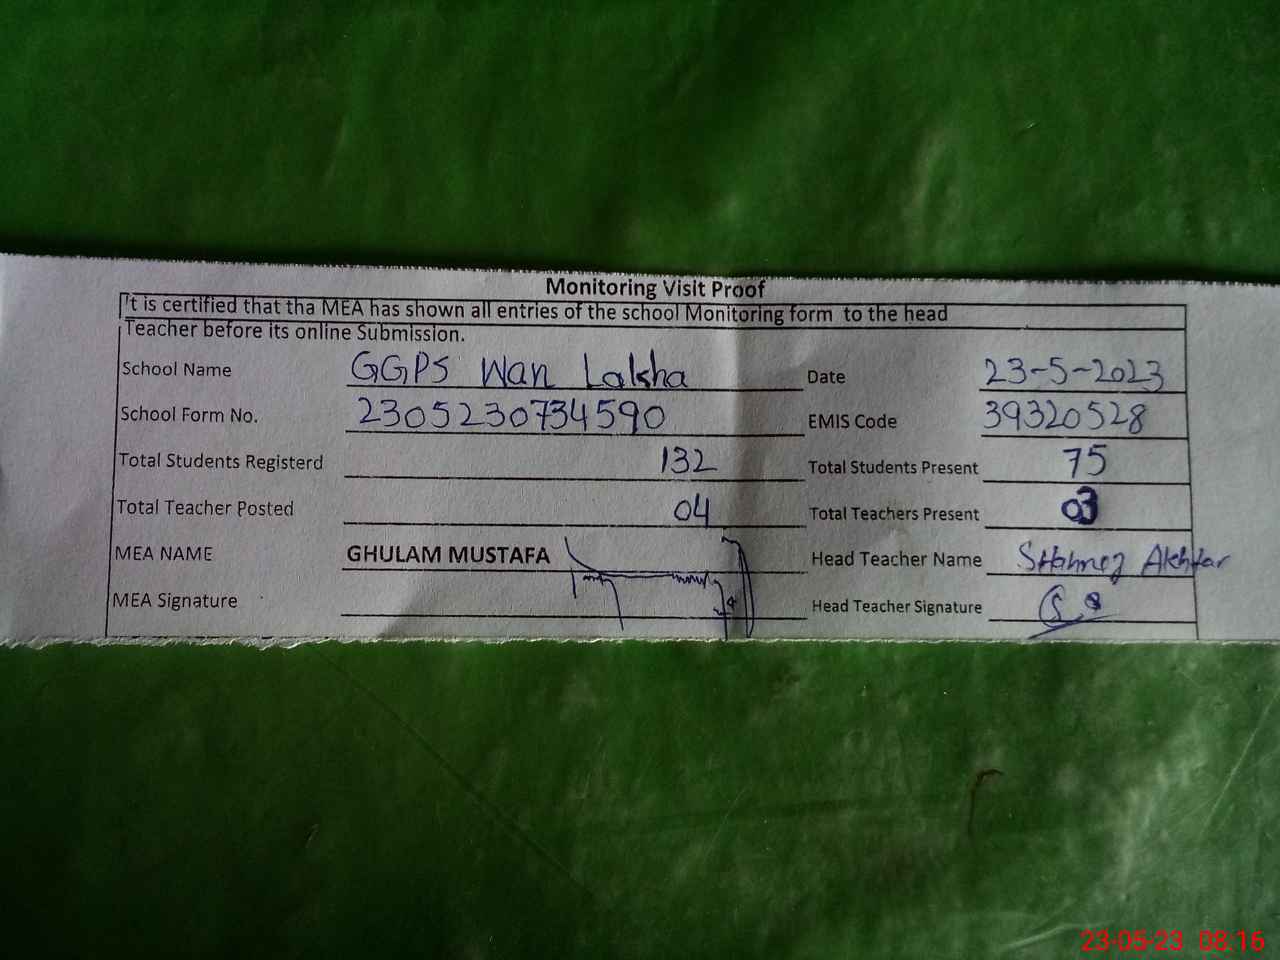 Monitoring Visit Proof
It is certified that tha MEA has shown all entries of the school Monitoring form to the head
Teacher before its online Submission.
School Name GGPS Wan Lakha Date 23-5-2023
School Form No. 2305230734590 EMIS Code 39320528
Total Students Registerd 132 Total Students Present 75
Total Teacher Posted 04 Total Teachers Present 03
MEA NAME GHULAM MUSTAFA Head Teacher Name Akhtar
MEA Signature Head Teacher Signature
23-05-23 08:16